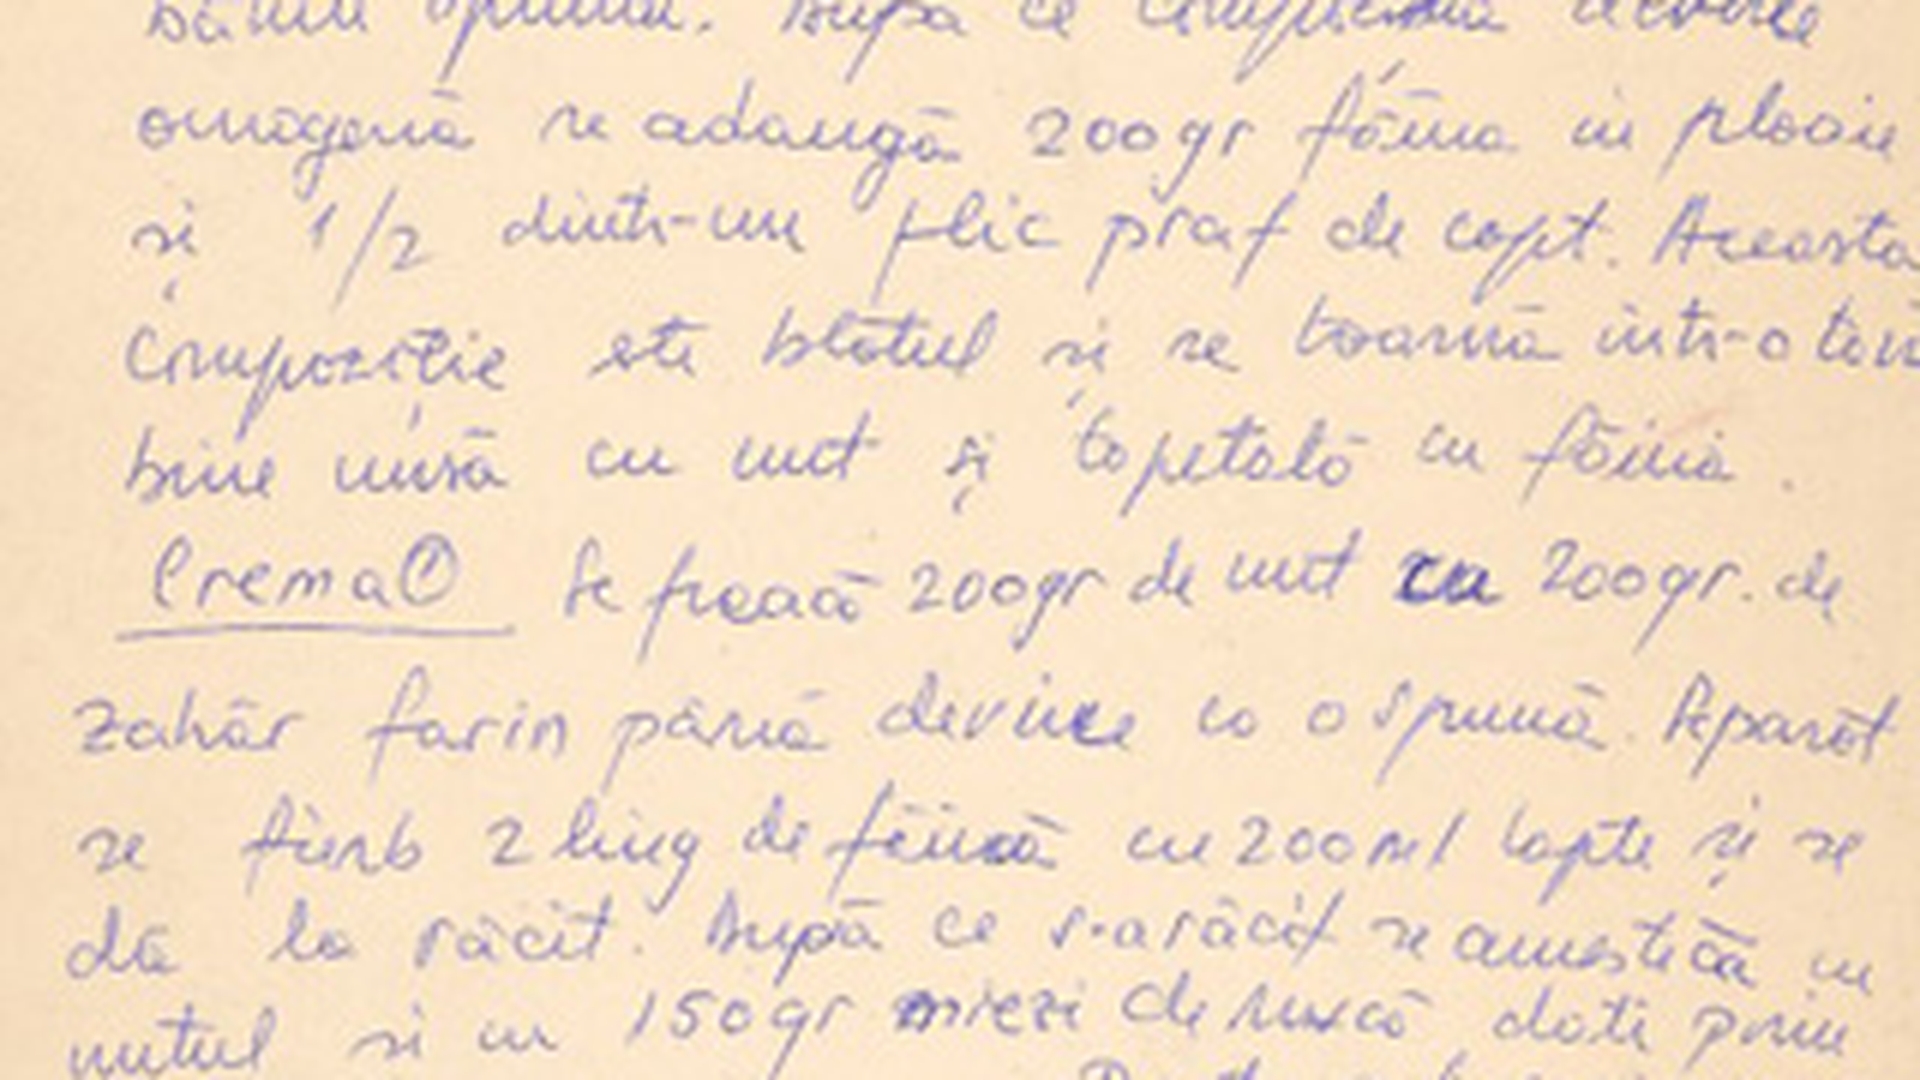 bătut spumă. După ce compoziția devine
omogenă se adaugă 200gr făina in ploaie
și 1/2 dintr-un plic praf de copt. Aceasta
Compoziție este blatul și se toarnă intr-o
bine unsă cu unt și tapetată cu făină.
Crema ① Se freacă 200gr de unt cu 200gr. de
zahăr farin până devine ca o spumă. Separat
se fierb 2 ling de făină cu 200ml lapte și se
dă la răcit. După ce s-a răcit se amestecă cu
untul si cu 150gr miezi de nucă dati prin